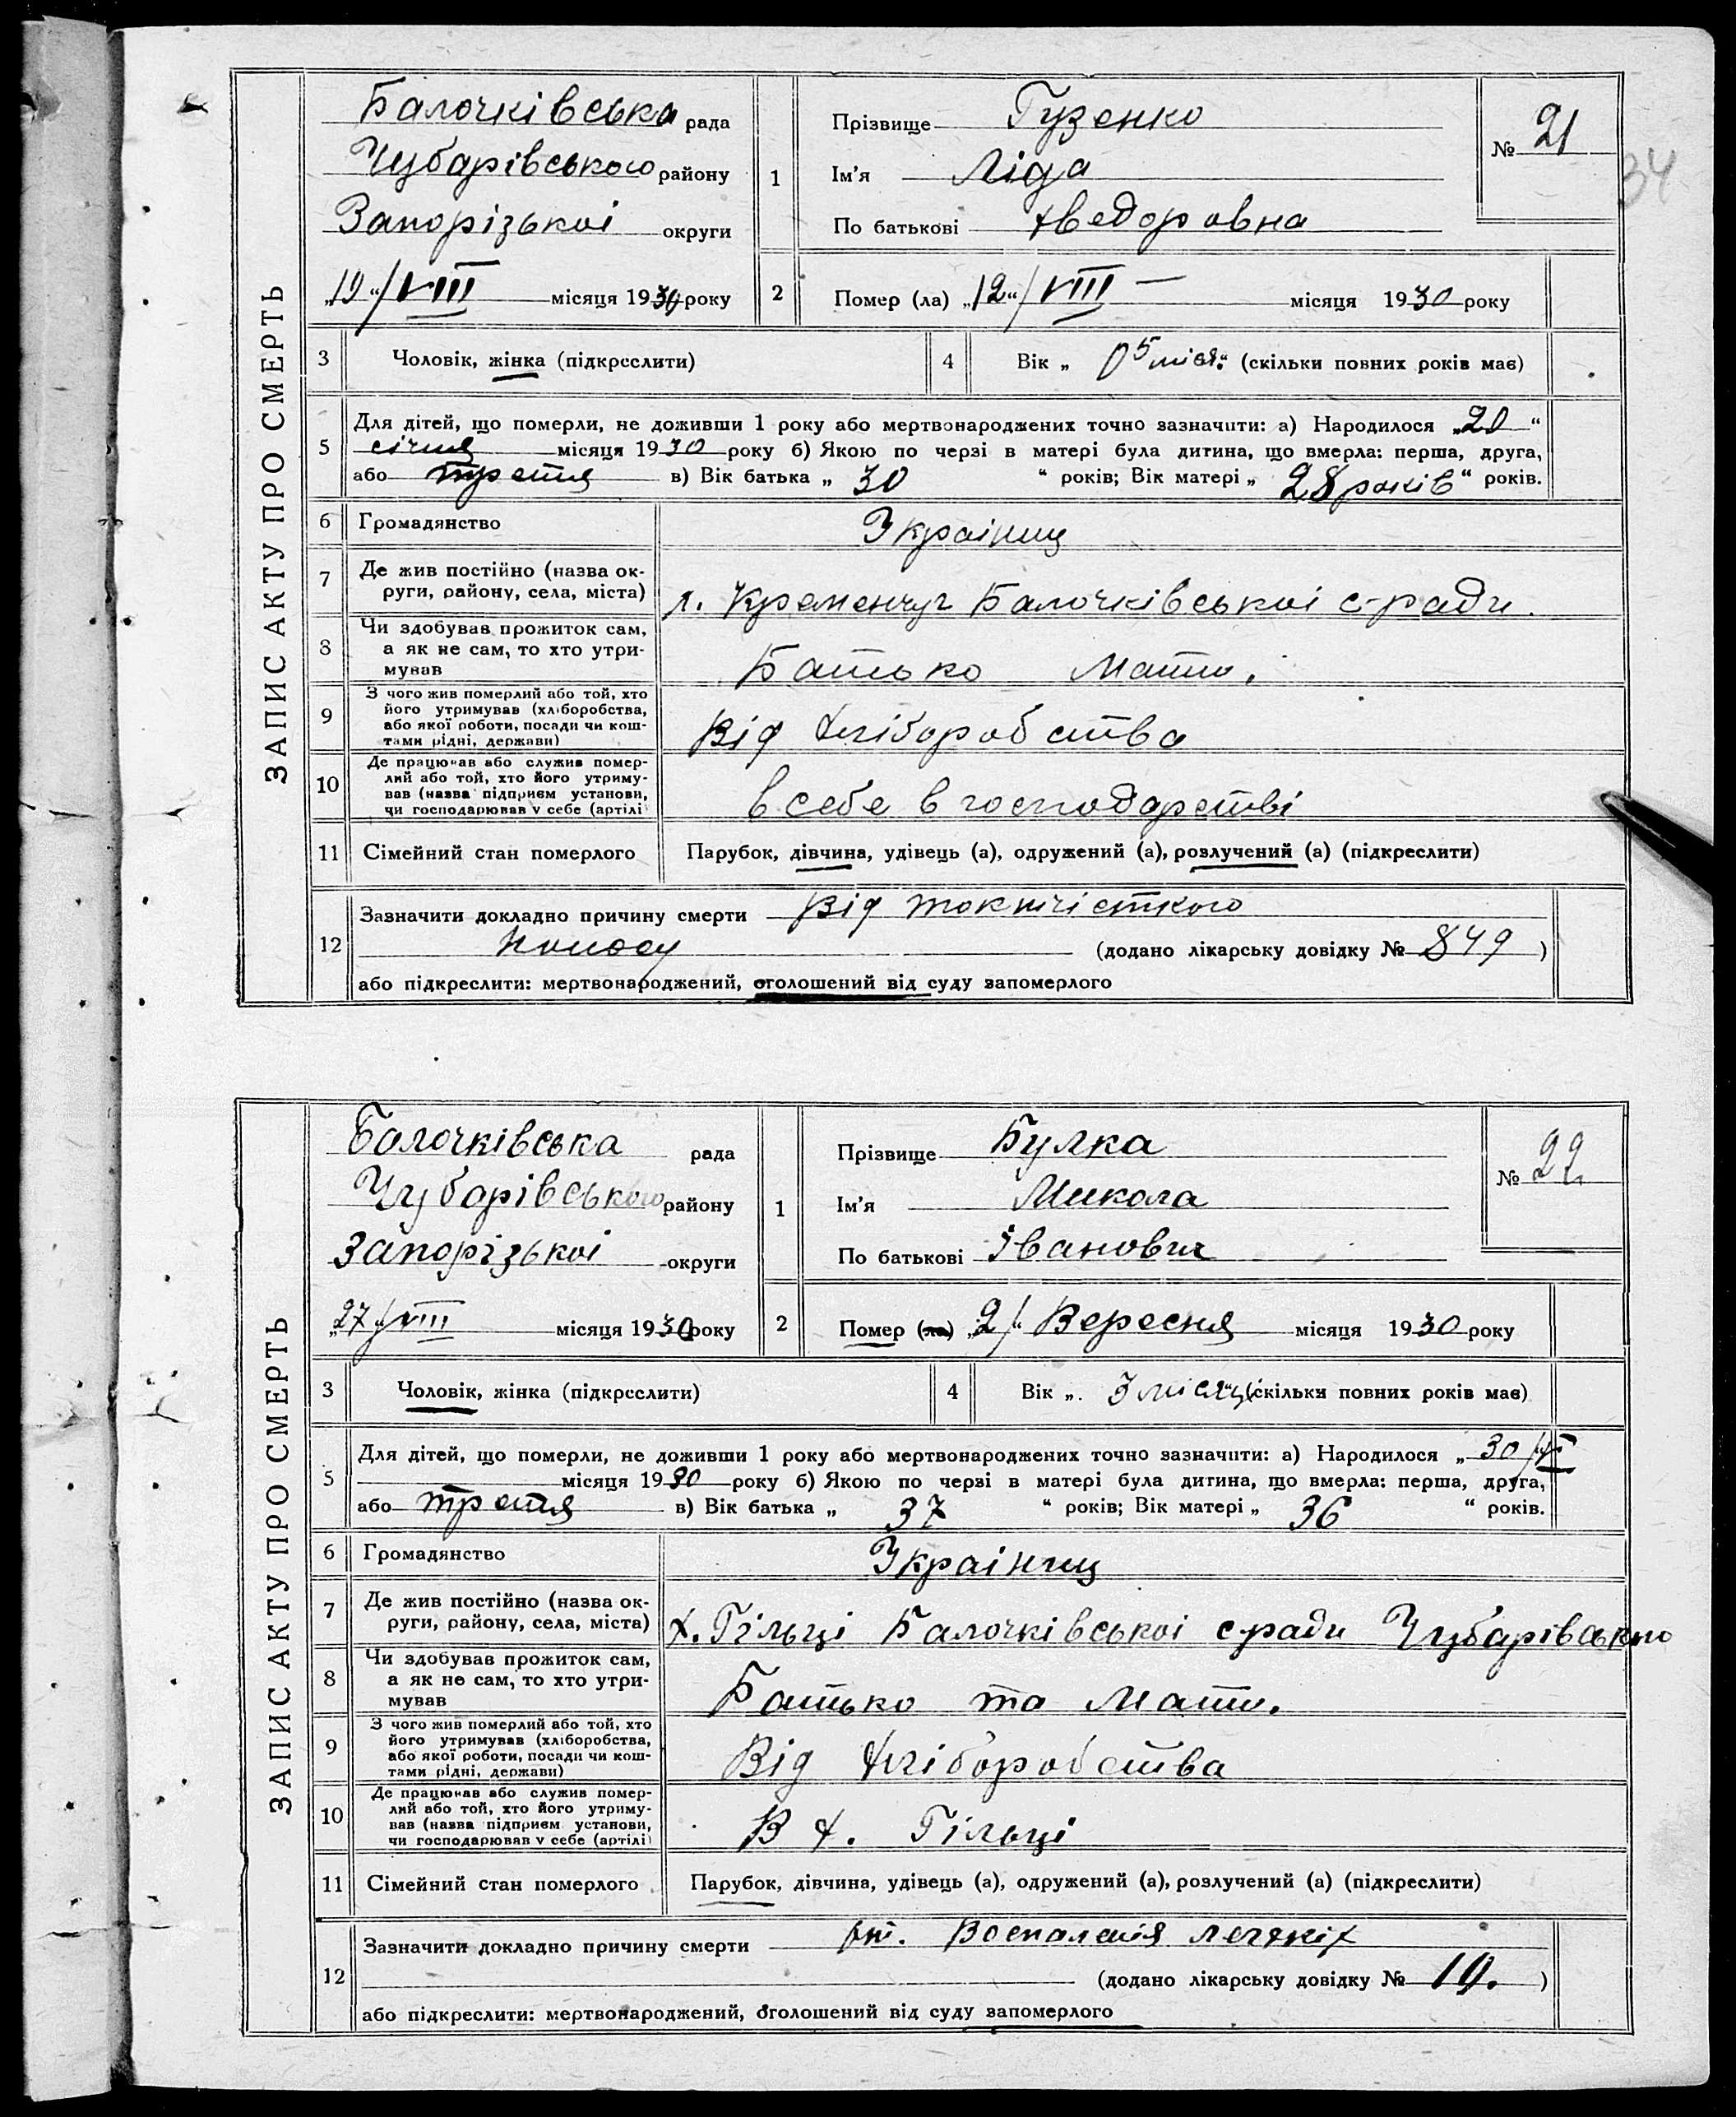 ЗАПИС АКТУ ПРО СМЕРТЬ
Балочківська рада
Чубарівського району
Запорізькоі округи
„19“/VIII місяця 1930 року
1
Прізвище Гузенко
Ім'я Ліда
По батькові Хведоровна
№ 21
34
2 Помер (ла) „12“/VIII — місяця 1930 року
3 Чоловік, жінка (підкреслити)
4 Вік „ 5 міся.“ (скільки повних років має)
5 Для дітей, що померли, не доживши 1 року або мертвонароджених точно зазначити: а) Народилося „20“
січня місяця 1930 року б) Якою по черзі в матері була дитина, що вмерла: перша, друга,
або третя в) Вік батька „ 30 “ років; Вік матері „ 28 років “ років.
6 Громадянство Украінец
7 Де жив постійно (назва ок-
руги, району, села, міста) Кременчуг Балочківськоі с-ради.
8 Чи здобував прожиток сам,
а як не сам, то хто утри-
мував Батько Мати.
9 З чого жив померлий або той, хто
його утримував (хліборобства,
або якої роботи, посади чи кош-
тами рідні, держави) Від Хліборобства
10 Де працював або служив помер-
лий або той, хто його утриму-
вав (назва підприєм установи,
чи господарював у себе (артілі) в себе в господарстві
11 Сімейний стан померлого Парубок, дівчина, удівець (а), одружений (а), розлучений (а) (підкреслити)
12 Зазначити докладно причину смерти Від
поносу (додано лікарську довідку № 849 )
або підкреслити: мертвонароджений, оголошений від суду запомерлого
ЗАПИС АКТУ ПРО СМЕРТЬ
Балочківська рада
Чубарівського району
Запорізькоі округи
„27“/VIII місяця 1930 року
1
Прізвище Булка
Ім'я Микола
По батькові Іванович
№ 22
2 Помер (ла) „2/“ Вересня місяця 1930 року
3 Чоловік, жінка (підкреслити)
4 Вік „ 3 місяц (скільки повних років має)
5 Для дітей, що померли, не доживши 1 року або мертвонароджених точно зазначити: а) Народилося „ 30/
місяця 1930 року б) Якою по черзі в матері була дитина, що вмерла: перша, друга,
або третя в) Вік батька „ 37 “ років; Вік матері „ 36 “ років.
6 Громадянство Украінец
7 Де жив постійно (назва ок-
руги, району, села, міста) х. Гільці Балочківськоі с ради Чубарівського
8 Чи здобував прожиток сам,
а як не сам, то хто утри-
мував Батько та Мати.
9 З чого жив померлий або той, хто
його утримував (хліборобства,
або якої роботи, посади чи кош-
тами рідні, держави) Від Хліборобства
10 Де працював або служив помер-
лий або той, хто його утриму-
вав (назва підприєм установи,
чи господарював у себе (артілі) В х. Гільці
11 Сімейний стан померлого Парубок, дівчина, удівець (а), одружений (а), розлучений (а) (підкреслити)
12 Зазначити докладно причину смерти от. Воспаления легкіх
(додано лікарську довідку № 19. )
або підкреслити: мертвонароджений, оголошений від суду запомерлого